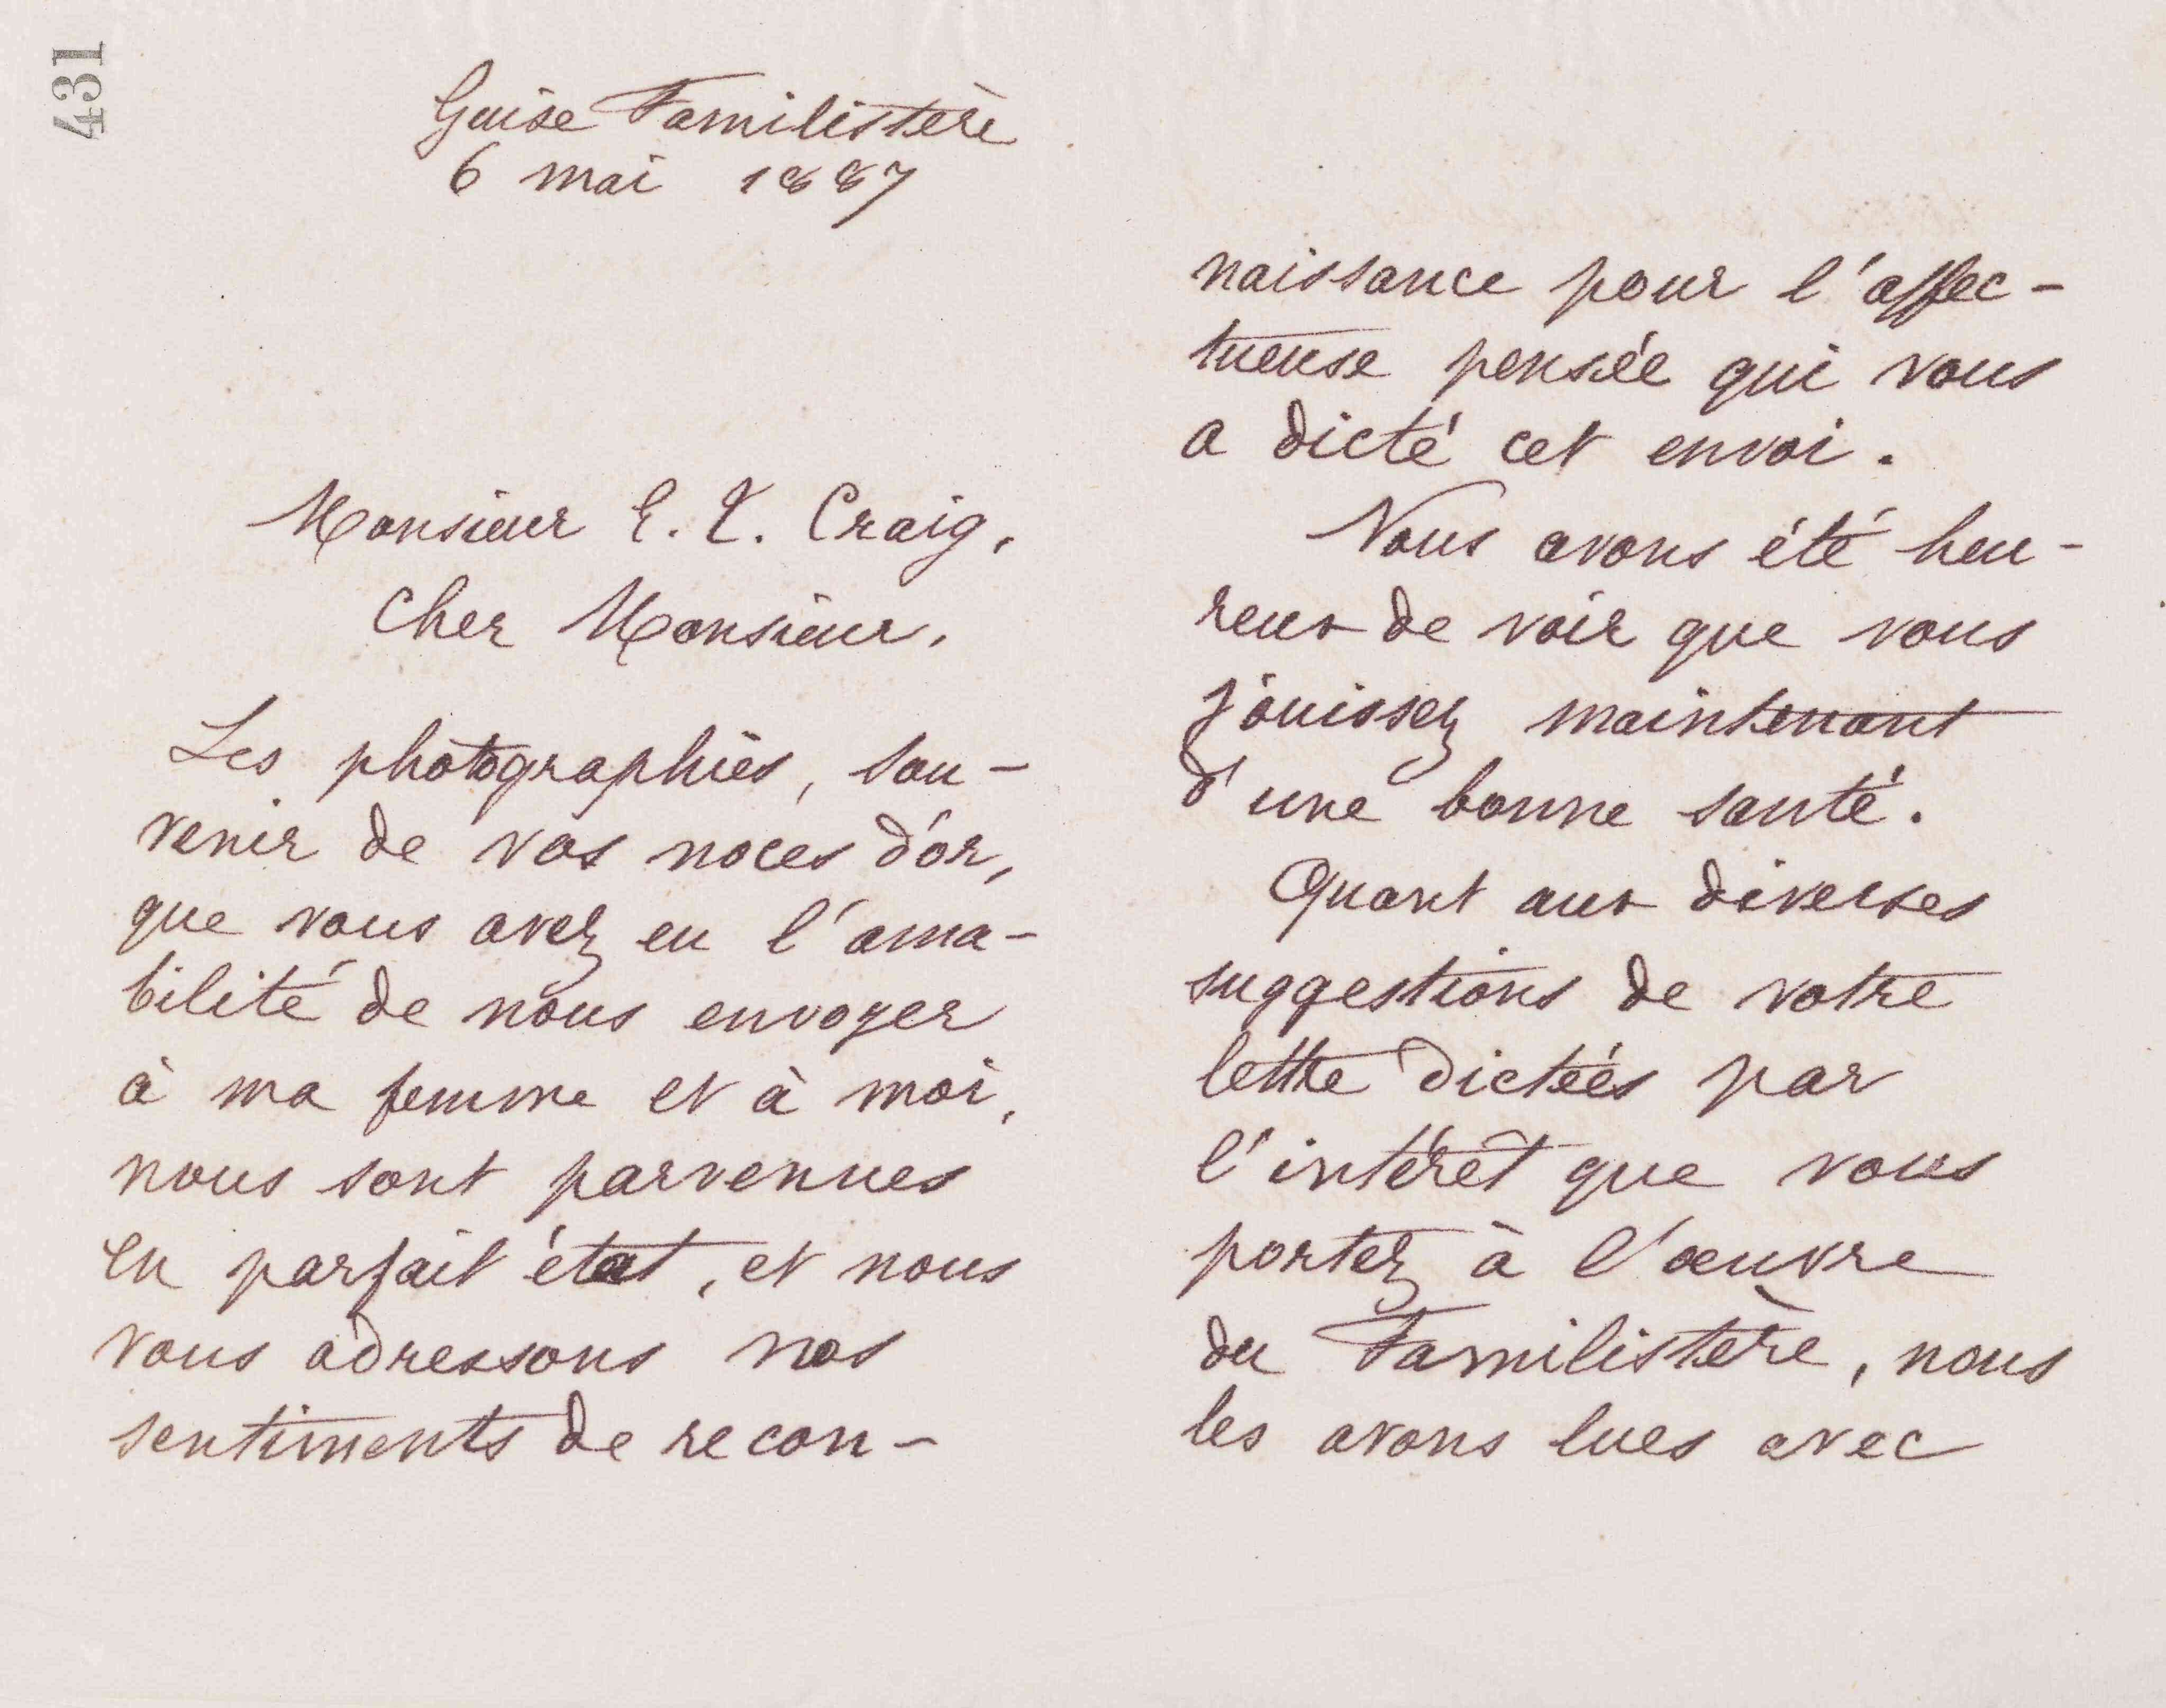 431
Guise Familistère
6 mai 1887
Monsieur E. T. Craig,
Cher Monsieur,
Les photographies, sou-
venir de vos noces d'or,
que vous avez eu l'ama-
bilité de nous envoyer
à ma femme et à moi,
nous sont parvenues
en parfait état, et nous
vous adressons nos
sentiments de recon-
naissance pour l'affec-
tueuse pensée qui vous
a dicté cet envoi.
Nous avons été heu-
reux de voir que vous
jouissez maintenant
d'une bonne santé.
Quant aux diverses
suggestions de votre
lettre dictées par
l'intérêt que vous
portez à l'œuvre
du Familistère, nous
les avons lues avec